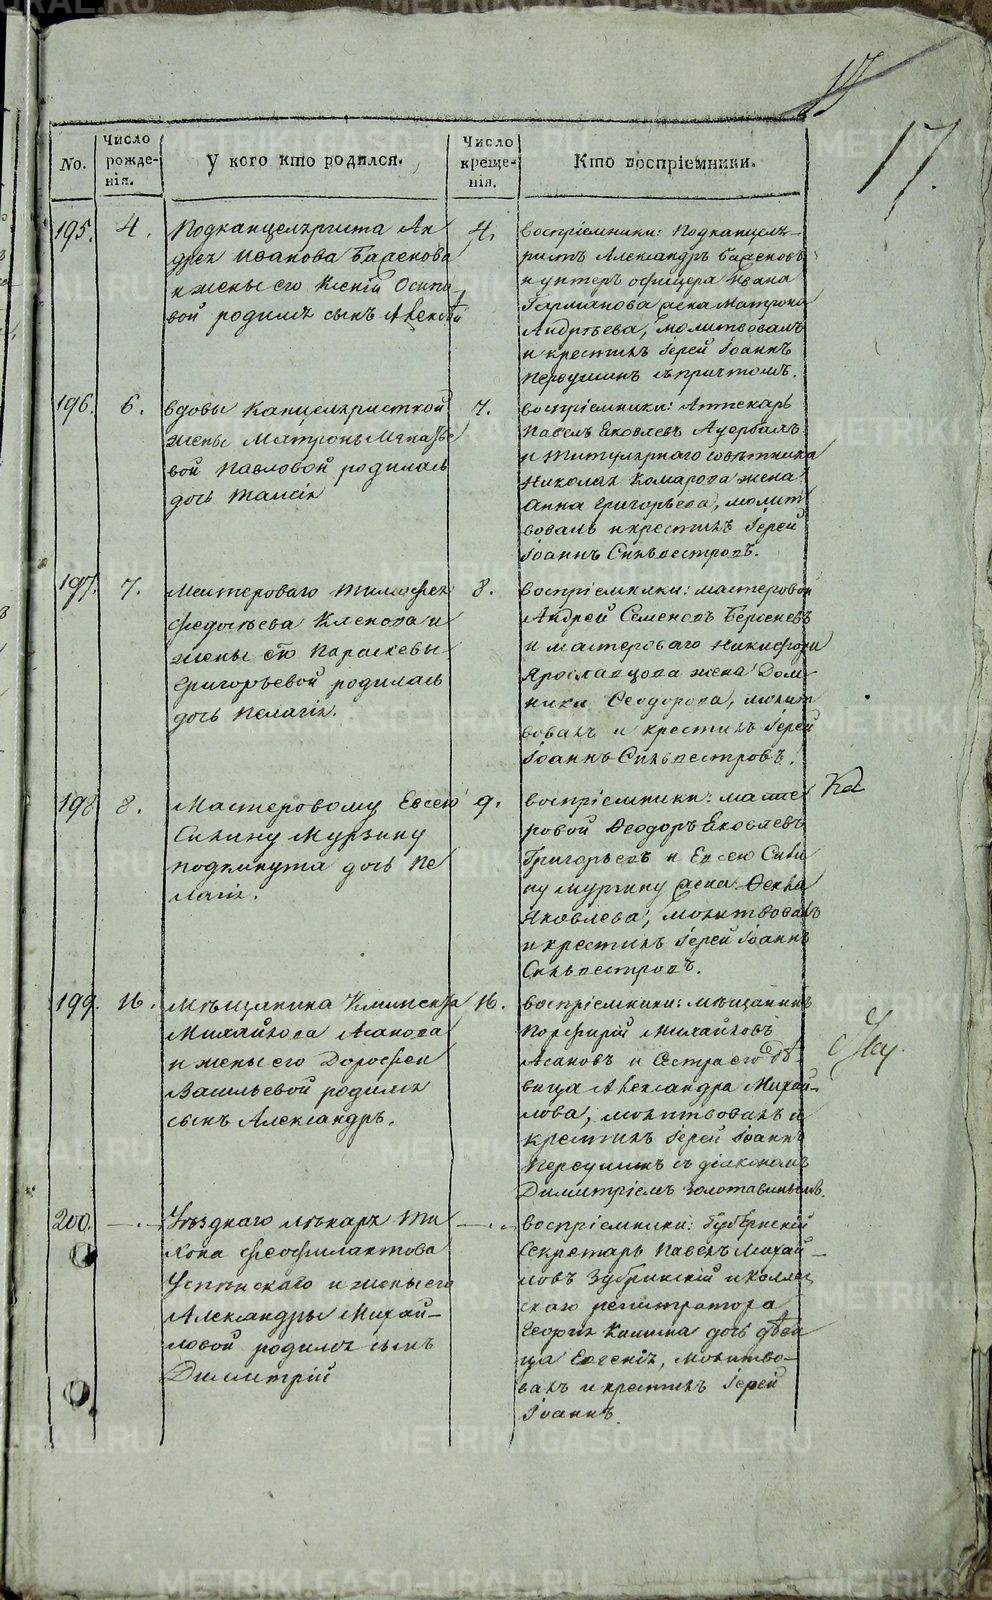 17
17.
No.
Число рожде-нія.
У кого кто родился.
Число креще-нія.
Кто воспріемники.
195.
4.
Подканцеляриста Ан
дрея Иванова Баженова
и жены его Ксеніи Осипо
вой родился сынъ Алексѣй
4.
воспріемники: Подканцеля-
ристъ Александръ Баженовъ
и унтеръ офицера Ивана
жена Матрона
Андреева, молитвовалъ
и крестилъ Іерей Іоаннъ
съ причтомъ.
196.
6.
вдовы Канцеляристкой
жены Матроны Игнатье
вой Павловой родилась
дочь Таисія
7.
воспріемники: Аптекарь
Павелъ Яковлевъ Ауербахъ
и Титулярнаго совѣтника
Николая Комарова жена
Анна Григорьева, молит
вовалъ и крестилъ Іерей
Іоаннъ Сильвестровъ.
197.
7.
Мастероваго Тимофея
Федотьева Кленова и
жены его Параскевы
Григорьевой родилась
дочь Пелагія.
8.
воспріемники: мастеровой
Андрей Семеновъ Берсеневъ
и мастероваго Никифора
Ярославцова жена Дом-
ника Феодорова, молит
вовалъ и крестилъ Іерей
Іоаннъ Сильвестровъ.
198
8.
Мастеровому Евсею
Силину Мурзину
подкинута дочь Пе
лагія.
9.
воспріемники: масте
ровой Ѳеодоръ Яковлевъ
Григорьевъ и Евсею Сили
ну Мурзину жена Ѳекла
Яковлева, молитвовалъ
и крестилъ Іерей Іоаннъ
Сильвестровъ.
199.
16.
Мѣщанина Климента
Михайлова Асанова
и жены его Дорофеи
Васильевой родился
сынъ Александръ.
16.
воспріемники: мѣщанинъ
Порфирій Михайловъ
Асановъ и Сестра его дѣ
вица Александра Михай-
лова, молитвовалъ и
крестилъ Іерей Іоаннъ
съ діакономъ
Димитріемъ Золотавинымъ.
200.
— . —
Уѣзднаго лѣкаря Ти
хона Феофилактова
Успенскаго и жены его
Александры Михай-
ловой родился сынъ
Димитрій
— . —
воспріемники: Губернскій
Секретарь Павелъ Михай-
ловъ Зубринскій и Коллеж
скаго регистратора
Георгія дочь дѣви
ца Евгенія, молитво-
валъ и крестилъ Іерей
Іоаннъ.
METRIKI.GASO-URAL.RU